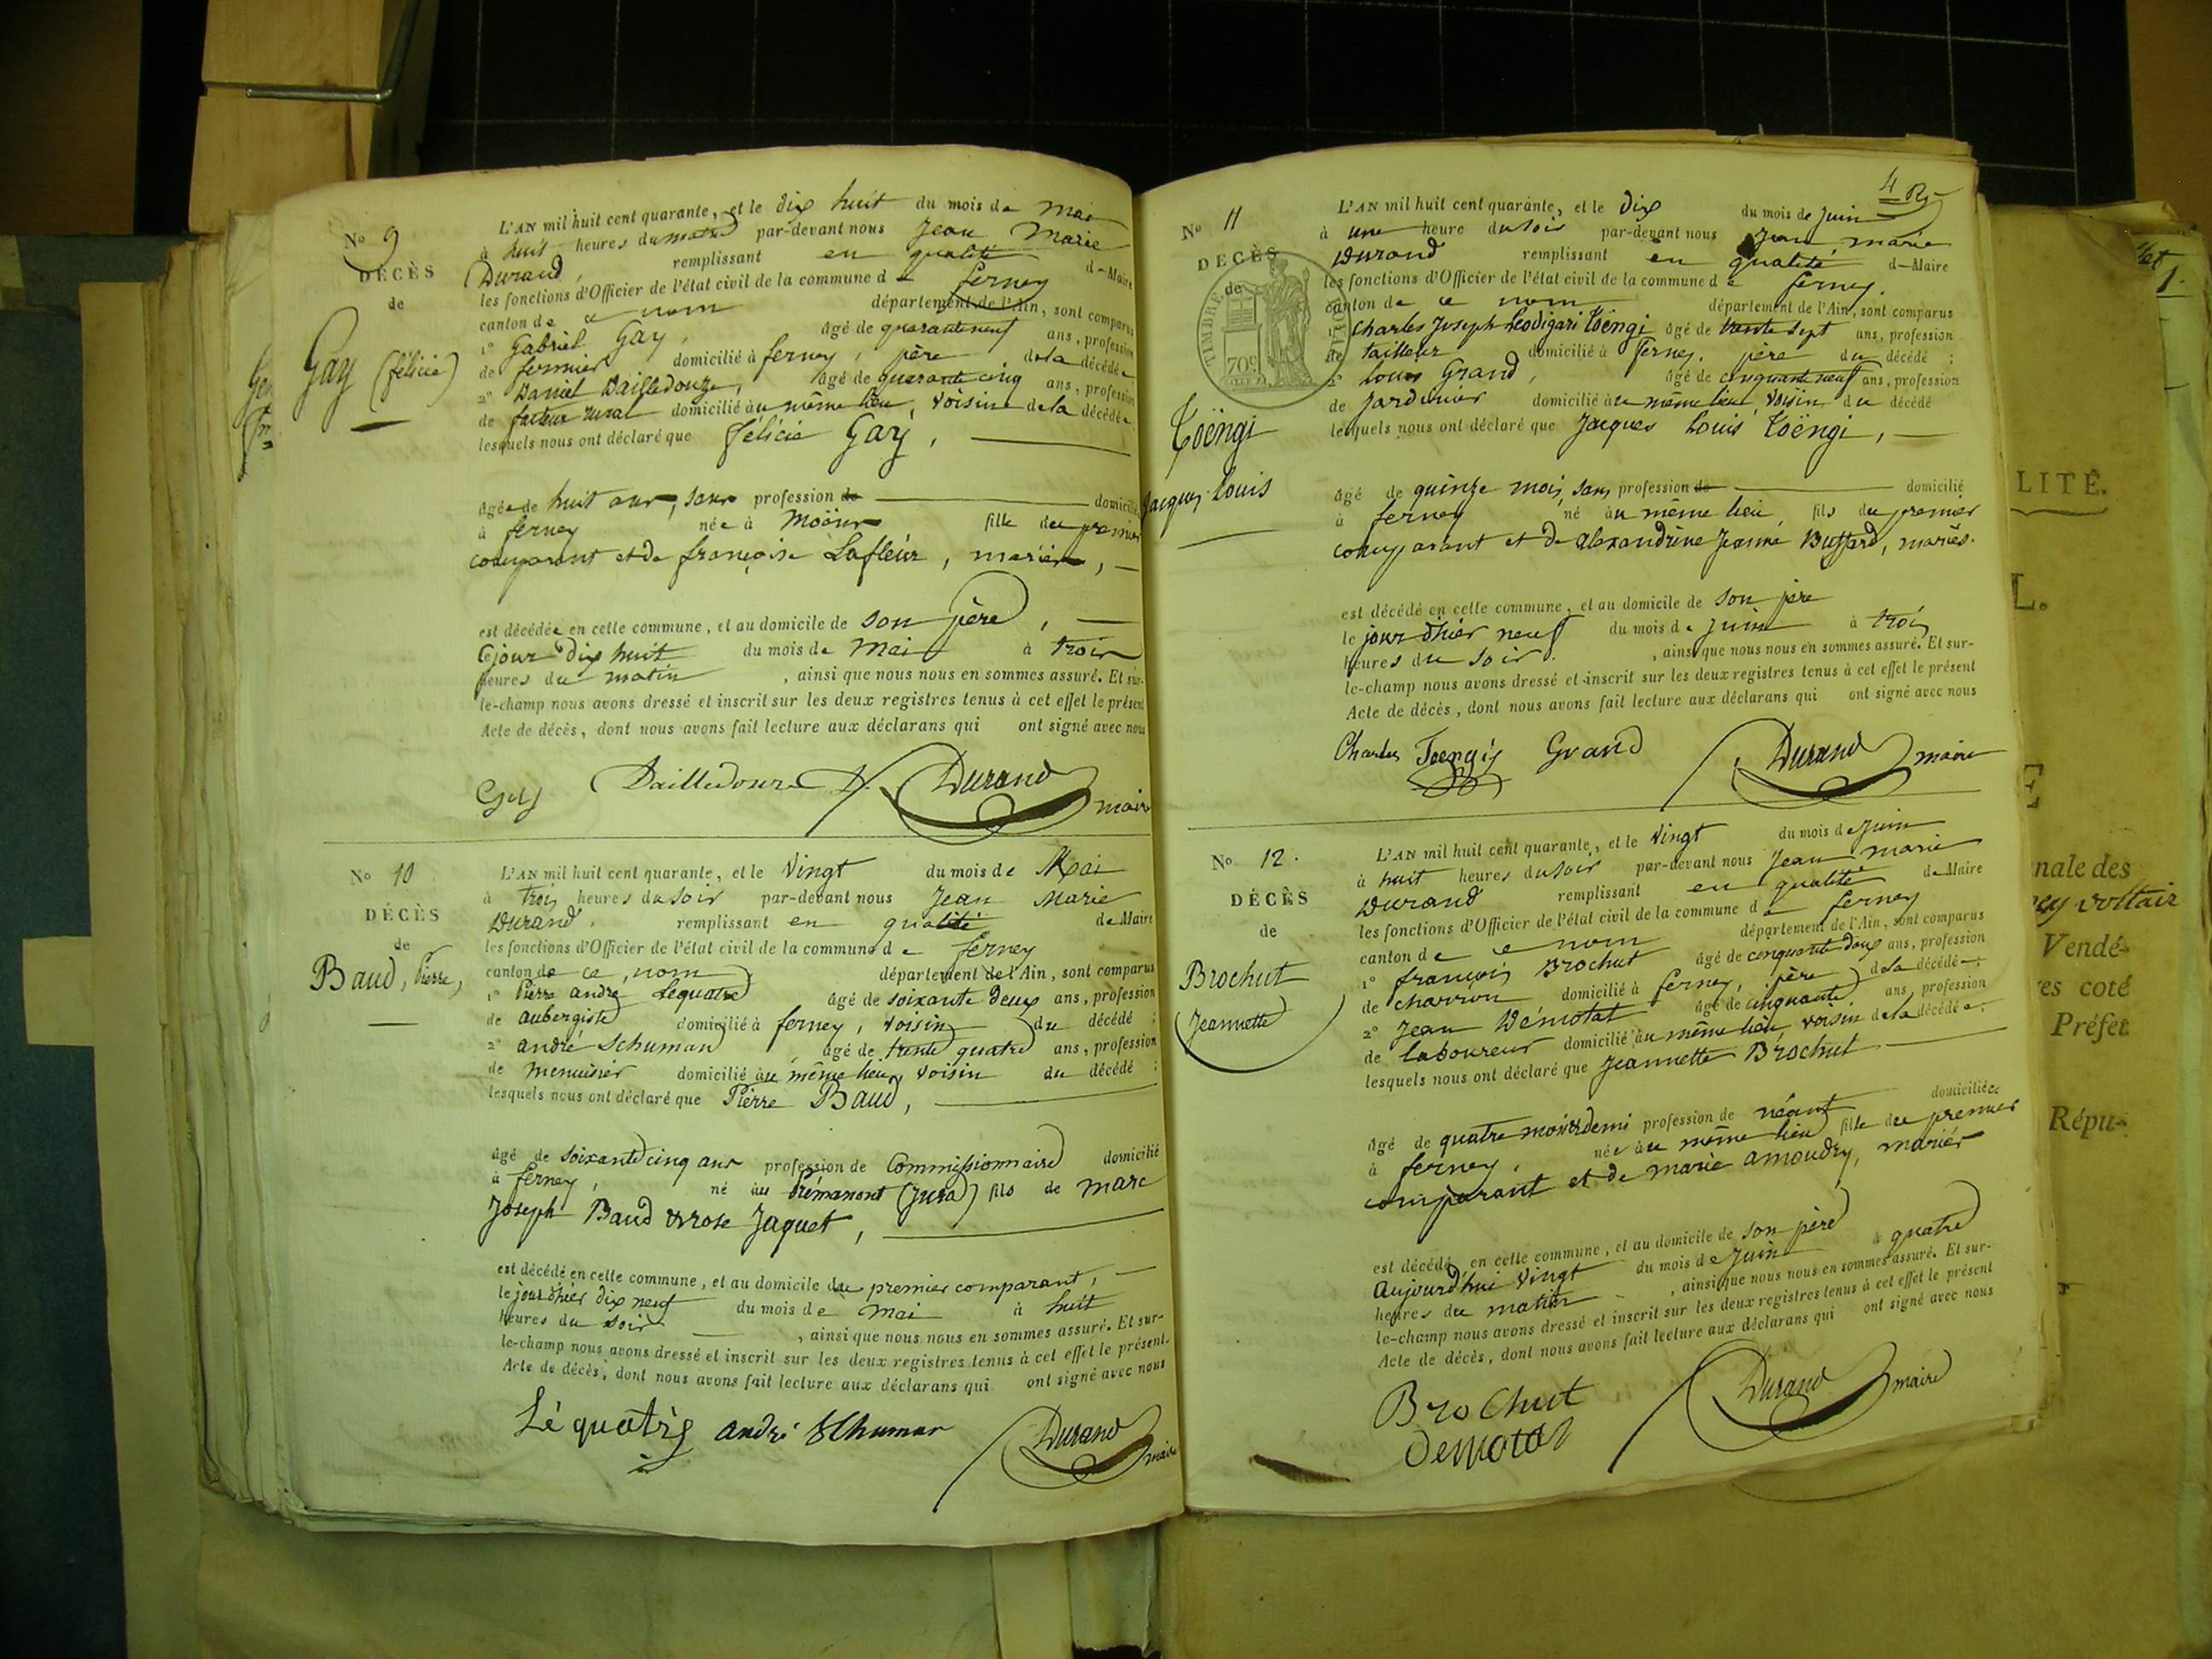 No 9
DÉCÈS
de
Gay (félicie)
L'AN mil huit cent quarante, et le dix huit du mois de mai
à huit heures du matin par-devant nous Jean Marie
Durand, remplissant en qualité de Maire
les fonctions d'Officier de l'état civil de la commune de ferney
canton de ce nom département de l'Ain, sont comparus
1° Gabriel Gay, âgé de quarante neuf ans, profession
de fermier domicilié à ferney, père de la décédée
2° Daniel Dailledouze, âgé de quarante cinq ans, profession
de facteur rural domicilié au même lieu, voisin de la décédée
lesquels nous ont déclaré que félicie Gay,
âgée de huit ans, sans profession de domicilié
à ferney née à Moëns fille du premier
comparant et de françoise Lafleur, mariés,
est décédée en cette commune, et au domicile de son père,
ce jour dix huit du mois de Mai à trois
heures du matin, ainsi que nous nous en sommes assuré. Et sur-
le-champ nous avons dressé et inscrit sur les deux registres tenus à cet effet le présent
Acte de décès, dont nous avons fait lecture aux déclarans qui ont signé avec nous
Dailledouze D. Durand maire
No 10
DÉCÈS
de
Baud, Pierre,
L'AN mil huit cent quarante, et le Vingt du mois de Mai
à trois heures du soir par-devant nous Jean Marie
Durand, remplissant en qualité de Maire
les fonctions d'Officier de l'état civil de la commune de ferney
canton de ce nom département de l'Ain, sont comparus
1° Pierre andré Lequatre âgé de soixante deux ans, profession
de aubergiste domicilié à ferney, voisin du décédé ;
2° andré Schuman, âgé de trente quatre ans, profession
de menuisier domicilié au même lieu, voisin du décédé ;
lesquels nous ont déclaré que Pierre Baud,
âgé de soixante cinq ans profession de Commissionnaire domicilié
à ferney, né au Prémanont (Jura) fils de marc
Joseph Baud & rose Jaquet,
est décédé en cette commune, et au domicile du premier comparant,
le jour d'hier dix neuf du mois de mai à huit
heures du soir, ainsi que nous nous en sommes assuré. Et sur-
le-champ nous avons dressé et inscrit sur les deux registres tenus à cet effet le présent
Acte de décès, dont nous avons fait lecture aux déclarans qui ont signé avec nous
Léquatre andré Schuman Durand maire
4
No 11
DÉCÈS
de
TIMBRE
70c
Toëngi
Jacques Louis
L'AN mil huit cent quarante, et le dix du mois de juin
à une heure du soir par-devant nous Jean marie
Durand remplissant en qualité de Maire
les fonctions d'Officier de l'état civil de la commune de ferney.
canton de ce nom département de l'Ain, sont comparus
1° Charles Joseph Leodigari Toëngi âgé de trente sept ans, profession
de tailleur domicilié à Ferney, père du décédé ;
2° Louis Grand, âgé de cinquante neuf ans, profession
de Jardinier domicilié au même lieu, voisin du décédé
lesquels nous ont déclaré que Jacques Louis Toëngi,
âgé de quinze mois, sans profession de domicilié
à ferney né au même lieu, fils du premier
comparant et de alexandrine Jeanne Buffard, mariés.
est décédé en cette commune, et au domicile de son père
le jour d'hier neuf du mois de Juin à trois
heures du soir, ainsi que nous nous en sommes assuré. Et sur-
le-champ nous avons dressé et inscrit sur les deux registres tenus à cet effet le présent
Acte de décès, dont nous avons fait lecture aux déclarans qui ont signé avec nous
Charles Toengi Grand Durand maire
No 12.
DÉCÈS
de
Brochut
(Jeannette)
L'AN mil huit cent quarante, et le Vingt du mois de Juin
à huit heures du soir par-devant nous Jean marie
Durand remplissant en qualité de Maire
les fonctions d'Officier de l'état civil de la commune de ferney
canton de ce nom département de l'Ain, sont comparus
1° françois Brochut âgé de cinquante deux ans, profession
de charron domicilié à ferney, père de la décédée ;
2° Jean Démotat âgé de cinquante ans, profession
de laboureur domicilié au même lieu, voisin de la décédée ;
lesquels nous ont déclaré que Jeannette Brochut
âgé de quatre mois & demi profession de néant domiciliée
à ferney, née au même lieu fille du premier
comparant et de marie amoudry, mariés
est décédé en cette commune, et au domicile de son père
aujourd'hui vingt du mois de Juin à quatre
heures du matin, ainsi que nous nous en sommes assuré. Et sur-
le-champ nous avons dressé et inscrit sur les deux registres tenus à cet effet le présent
Acte de décès, dont nous avons fait lecture aux déclarans qui ont signé avec nous
Brochut Durand maire
Demotat
LITÉ.
L.
E
nale des
voltair
Vendé-
res coté
Préfet
Répu-